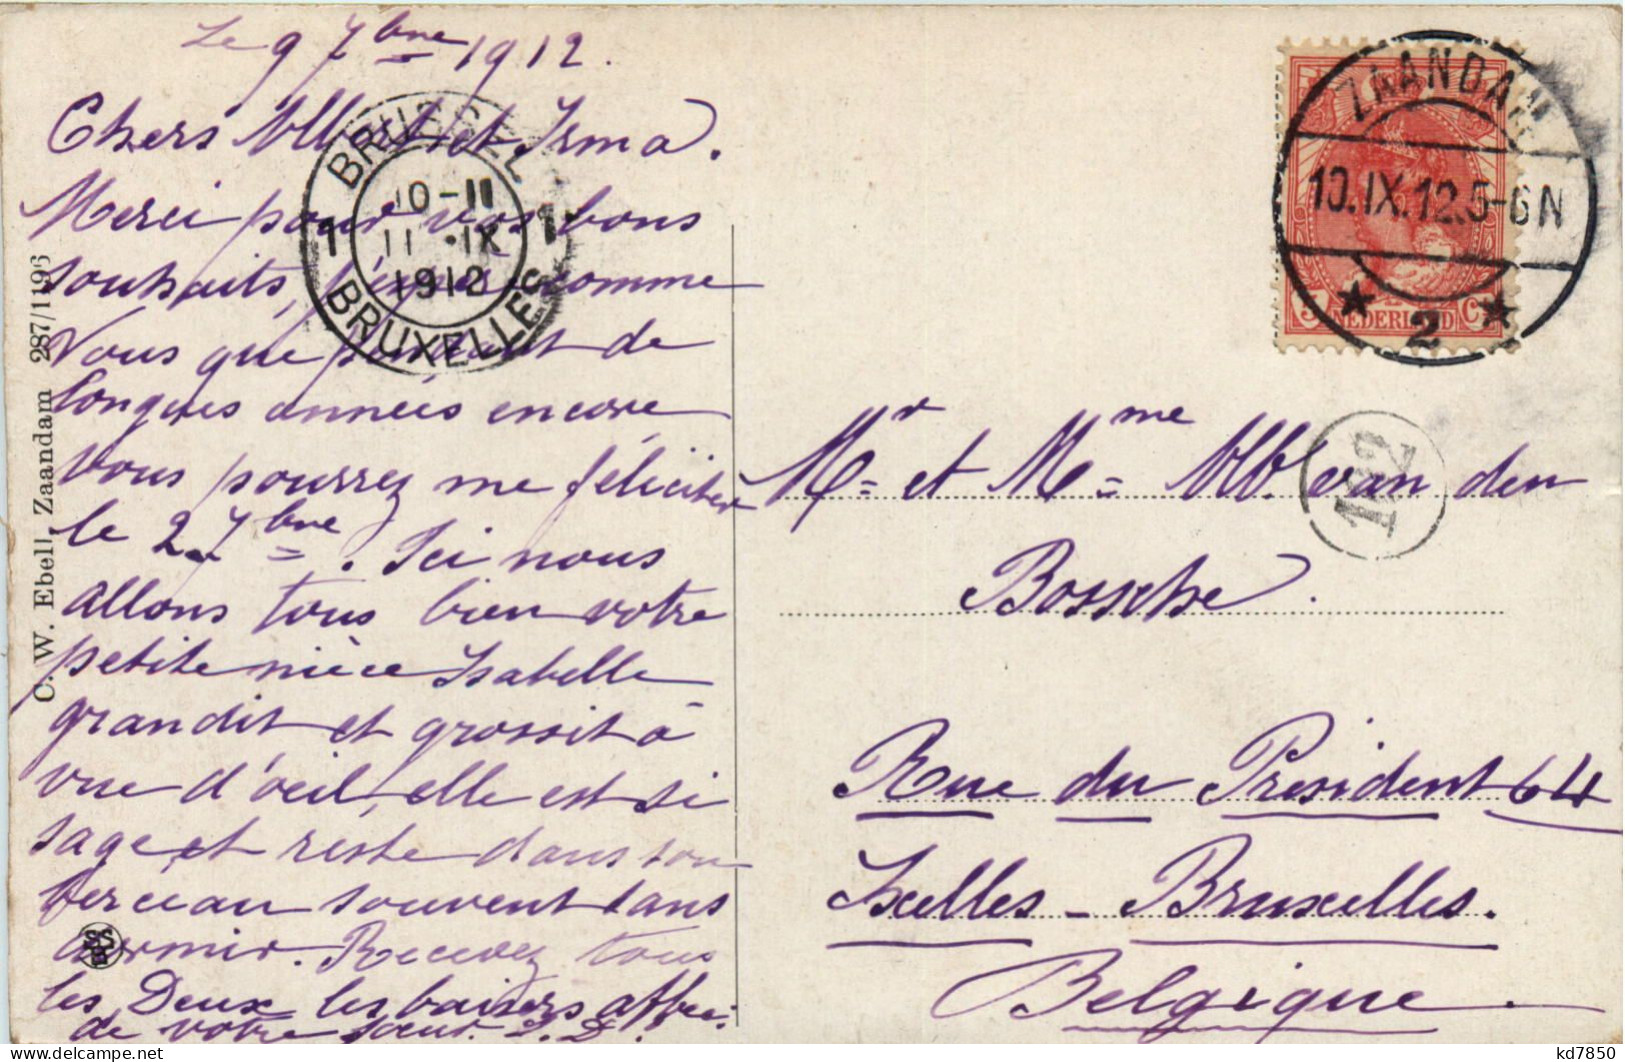 Le 9 7bre 1912.
Chers Albert et Irma.
Merci pour vos bons
souhaits, j'espère comme
Vous que pendant de
longues années encore
vous pourrez me féliciter
le 2 7bre. Ici nous
allons tous bien votre
petite nièce Isabelle
grandit et grossit à
vue d'oeil, elle est si
sage et réste dans son
berceau souvent sans
dormir. Recevez tous
les Deux les baisers affec:
de votre soeur.
C. W. Ebell, Zaandam 287/1196
BRUSSEL
10-11
1 11 .IX 1
1912
BRUXELLES
ZAANDAM
10.IX.12.5-6N
2
5 NEDERLAND Ct
Mr et Mme Alb. van den
122
Bossche.
Rue du President 64
Ixelles - Bruxelles.
Belgique.
kd7850